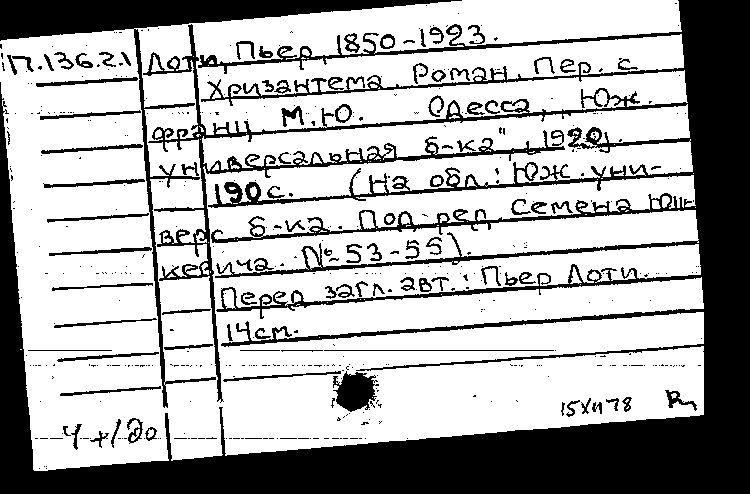 П.136.2.1 Лоти, Пьер, 1850-1923.
Хризантема. Роман. Пер. с
франц. М.Ю. Одесса, „Юж.
универсальная б-ка", [1920].
190 с. (На обл.: Юж. уни-
верс б-ка. Под ред. Семена Юш-
кевича. № 53-55).
Перед загл. авт.: Пьер Лоти.
14 см.